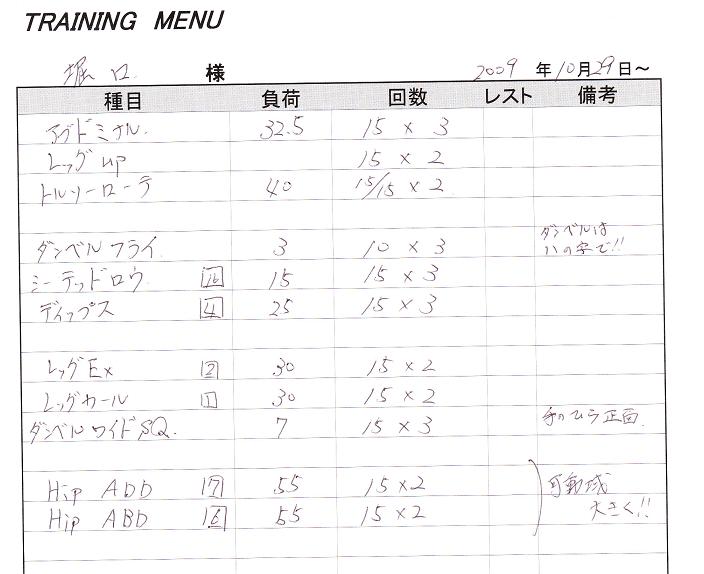 TRAINING MENU
堀口 様 2009 年 10月29日～
種目 負荷 回数 レスト 備考
アブドミナル. 32.5 15 × 3
レッグ up 15 × 2
トルソーローテ 40 15/15 × 2
ダンベルは
ダンベル フライ 3 10 × 3 ハの字で!!
シーテッドロウ 16 15 15 × 3
ディップス 4 25 15 × 3
レッグ Ex 2 30 15 × 2
レッグカール 1 30 15 × 2
ダンベル ワイド SQ. 7 15 × 3 手のひら正面.
Hip ADD 17 55 15 × 2 可動域
Hip ABD 16 55 15 × 2 大きく!!